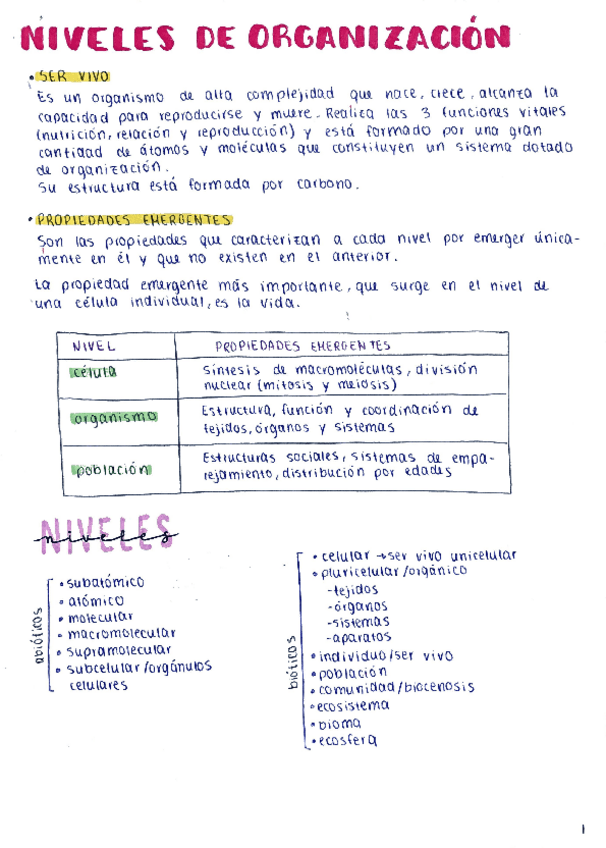 NIVELES DE ORGANIZACIÓN
• SER VIVO
Es un organismo de alta complejidad que nace, crece, alcanza la
capacidad para reproducirse y muere. Realiza las 3 funciones vitales
(nutrición, relación y reproducción) y está formado por una gran
cantidad de átomos y moléculas que constituyen un sistema dotado
de organización.
Su estructura está formada por carbono.
• PROPIEDADES EMERGENTES
Son las propiedades que caracterizan a cada nivel por emerger única-
mente en él y que no existen en el anterior.
La propiedad emergente más importante, que surge en el nivel de
una célula individual, es la vida.
NIVEL PROPIEDADES EMERGENTES
célula Síntesis de macromoléculas, división
nuclear (mitosis y meiosis)
organismo Estructura, función y coordinación de
tejidos, órganos y sistemas
población Estructuras sociales, sistemas de empa-
rejamiento, distribución por edades
NIVELES
niveles
abióticos
• subatómico
• atómico
• molecular
• macromolecular
• supramolecular
• subcelular/orgánulos
celulares
bióticos
• celular → ser vivo unicelular
• pluricelular/orgánico
-tejidos
-órganos
-sistemas
-aparatos
• individuo/ser vivo
• población
• comunidad/biocenosis
• ecosistema
• bioma
• ecosfera
1